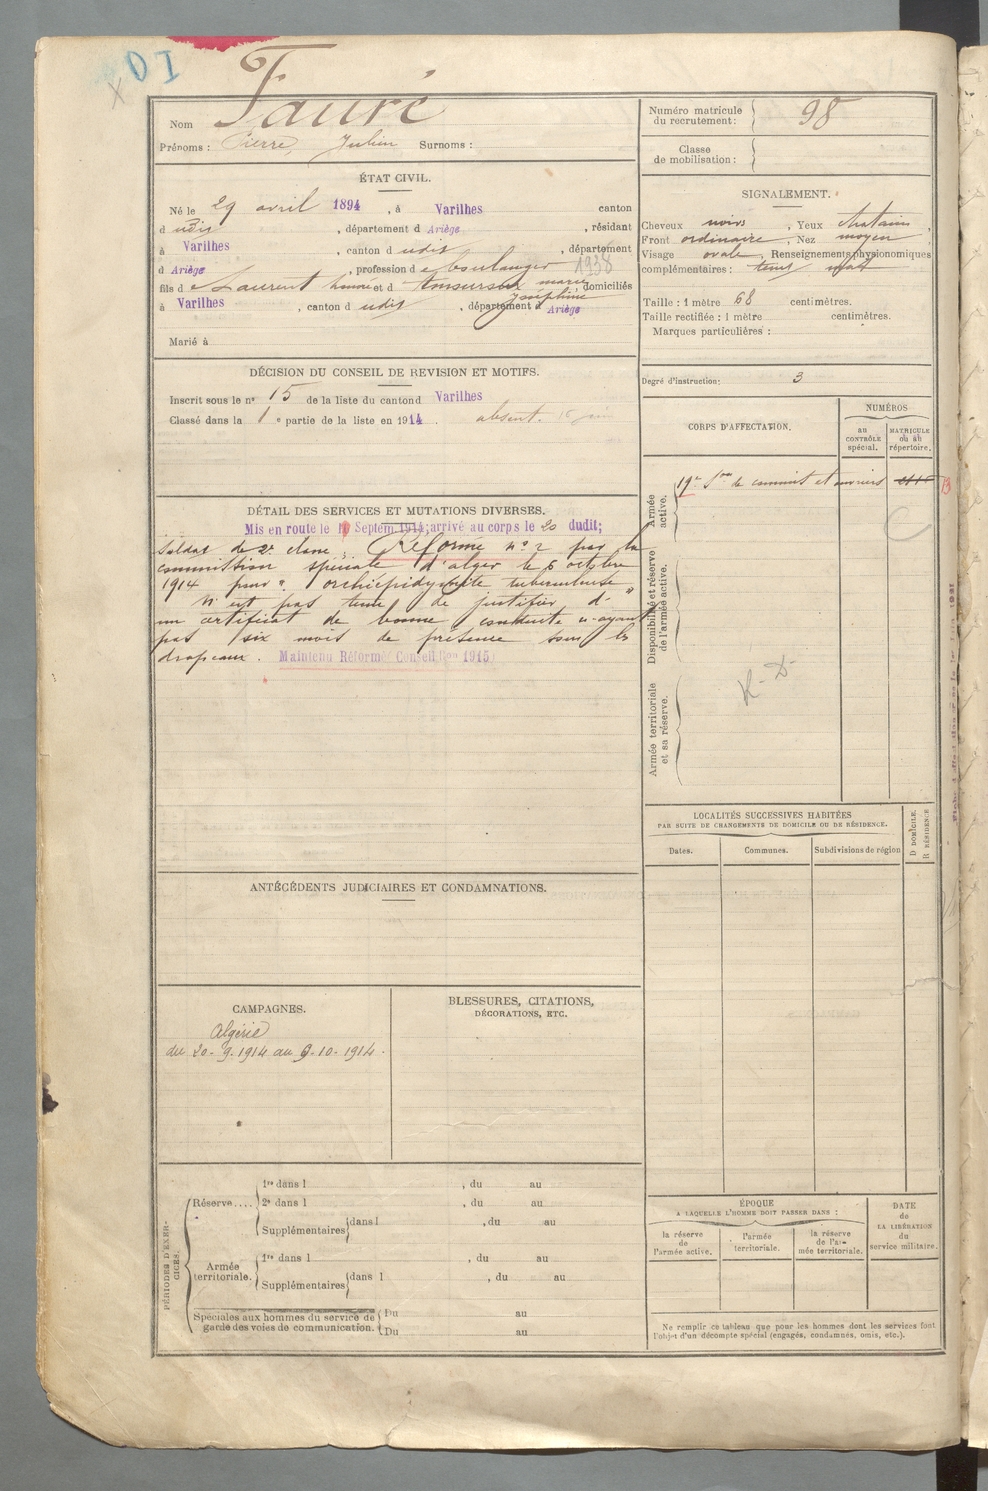 DI
Nom Fauré
Prénoms : Pierre, Julien Surnoms :
Numéro matricule du recrutement : 98
Classe de mobilisation :
ÉTAT CIVIL.
Né le 29 avril 1894, à Varilhes canton
d udit, département d Ariège, résidant
à Varilhes, canton d udit, département
d Ariège, profession de boulanger 1938
fils de Laurent honoré et d marie Joséphine, domiciliés
à Varilhes, canton d udit, département d Ariège
Marié à
SIGNALEMENT.
Cheveux noirs, Yeux chatains,
Front ordinaire, Nez moyen
Visage ovale, Renseignements physionomiques
complémentaires : teint mat
Taille : 1 mètre 68 centimètres.
Taille rectifiée : 1 mètre centimètres.
Marques particulières :
Degré d'instruction : 3
DÉCISION DU CONSEIL DE REVISION ET MOTIFS.
Inscrit sous le nº 15 de la liste du canton d Varilhes
Classé dans la 1 e partie de la liste en 1914. absent.
DÉTAIL DES SERVICES ET MUTATIONS DIVERSES.
Mis en route le Septem. 1914; arrivé au corps le 20 dudit;
Soldat de 2e classe. Réformé nº 2 par la
commission spéciale d'alger le 6 octobre
1914 pour " orchiepidydymite tuberculeuse "
N'est pas tenu de justifier d'
un certificat de bonne conduite n'ayant
pas six mois de présence sous les
drapeaux. Maintenu Réformé Conseil 1915)
CORPS D'AFFECTATION.
NUMÉROS
au CONTRÔLE spécial.
MATRICULE ou au répertoire.
Armée active.
19e Son de commis et ouvriers
Disponibilité et réserve de l'armée active.
Armée territoriale et sa réserve.
R-D-
LOCALITÉS SUCCESSIVES HABITÉES
PAR SUITE DE CHANGEMENTS DE DOMICILE OU DE RÉSIDENCE.
Dates.
Communes.
Subdivisions de région
D DOMICILE.
R RÉSIDENCE
ANTÉCÉDENTS JUDICIAIRES ET CONDAMNATIONS.
CAMPAGNES.
Algérie
du 20-9-1914 au 9-10-1914.
BLESSURES, CITATIONS,
DÉCORATIONS, ETC.
PÉRIODES D'EXERCICES.
Réserve....
1re dans l , du au
2e dans l , du au
Supplémentaires dans l , du au
Armée territoriale.
1re dans l , du au
Supplémentaires dans l , du au
Spéciales aux hommes du service de
garde des voies de communication.
Du au
Du au
ÉPOQUE
A LAQUELLE L'HOMME DOIT PASSER DANS :
la réserve de l'armée active.
l'armée territoriale.
la réserve de l'armée territoriale.
DATE de LA LIBÉRATION du service militaire.
Ne remplir ce tableau que pour les hommes dont les services font
l'objet d'un décompte spécial (engagés, condamnés, omis, etc.).